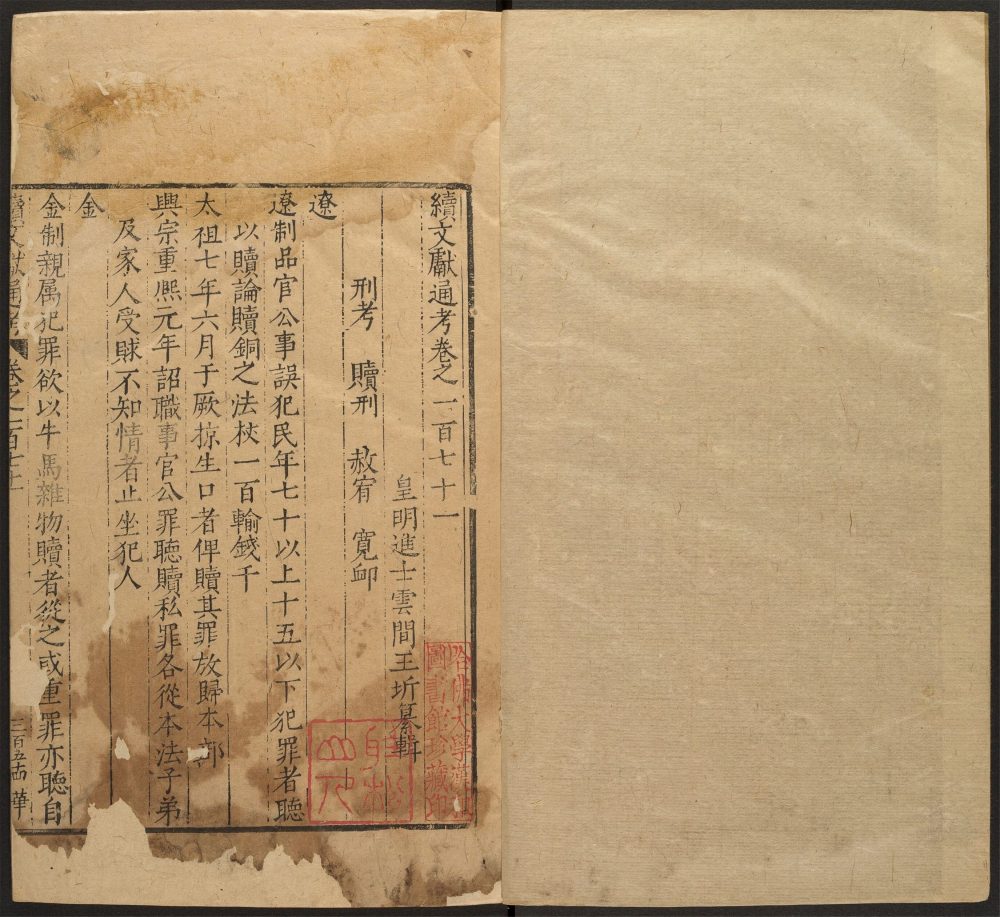 續文獻通考卷之一百七十一
皇明進士雲間王圻纂輯
刑考 贖刑 赦宥 寬䘏
遼
遼制品官公事誤犯民年七十以上十五以下犯罪者聽
以贖論贖銅之法杖一百輸錢千
太祖七年六月于厥掠生口者俾贖其罪放歸本部
興宗重熙元年詔職事官公罪聽贖私罪各從本法子弟
及家人受賕不知情者止坐犯人
金
金制親属犯罪欲以牛馬雜物贖者從之或重罪亦聽自
續文獻通考 卷之一百七十一 三百五十四 華
哈佛大學漢和
圖書館珍藏印